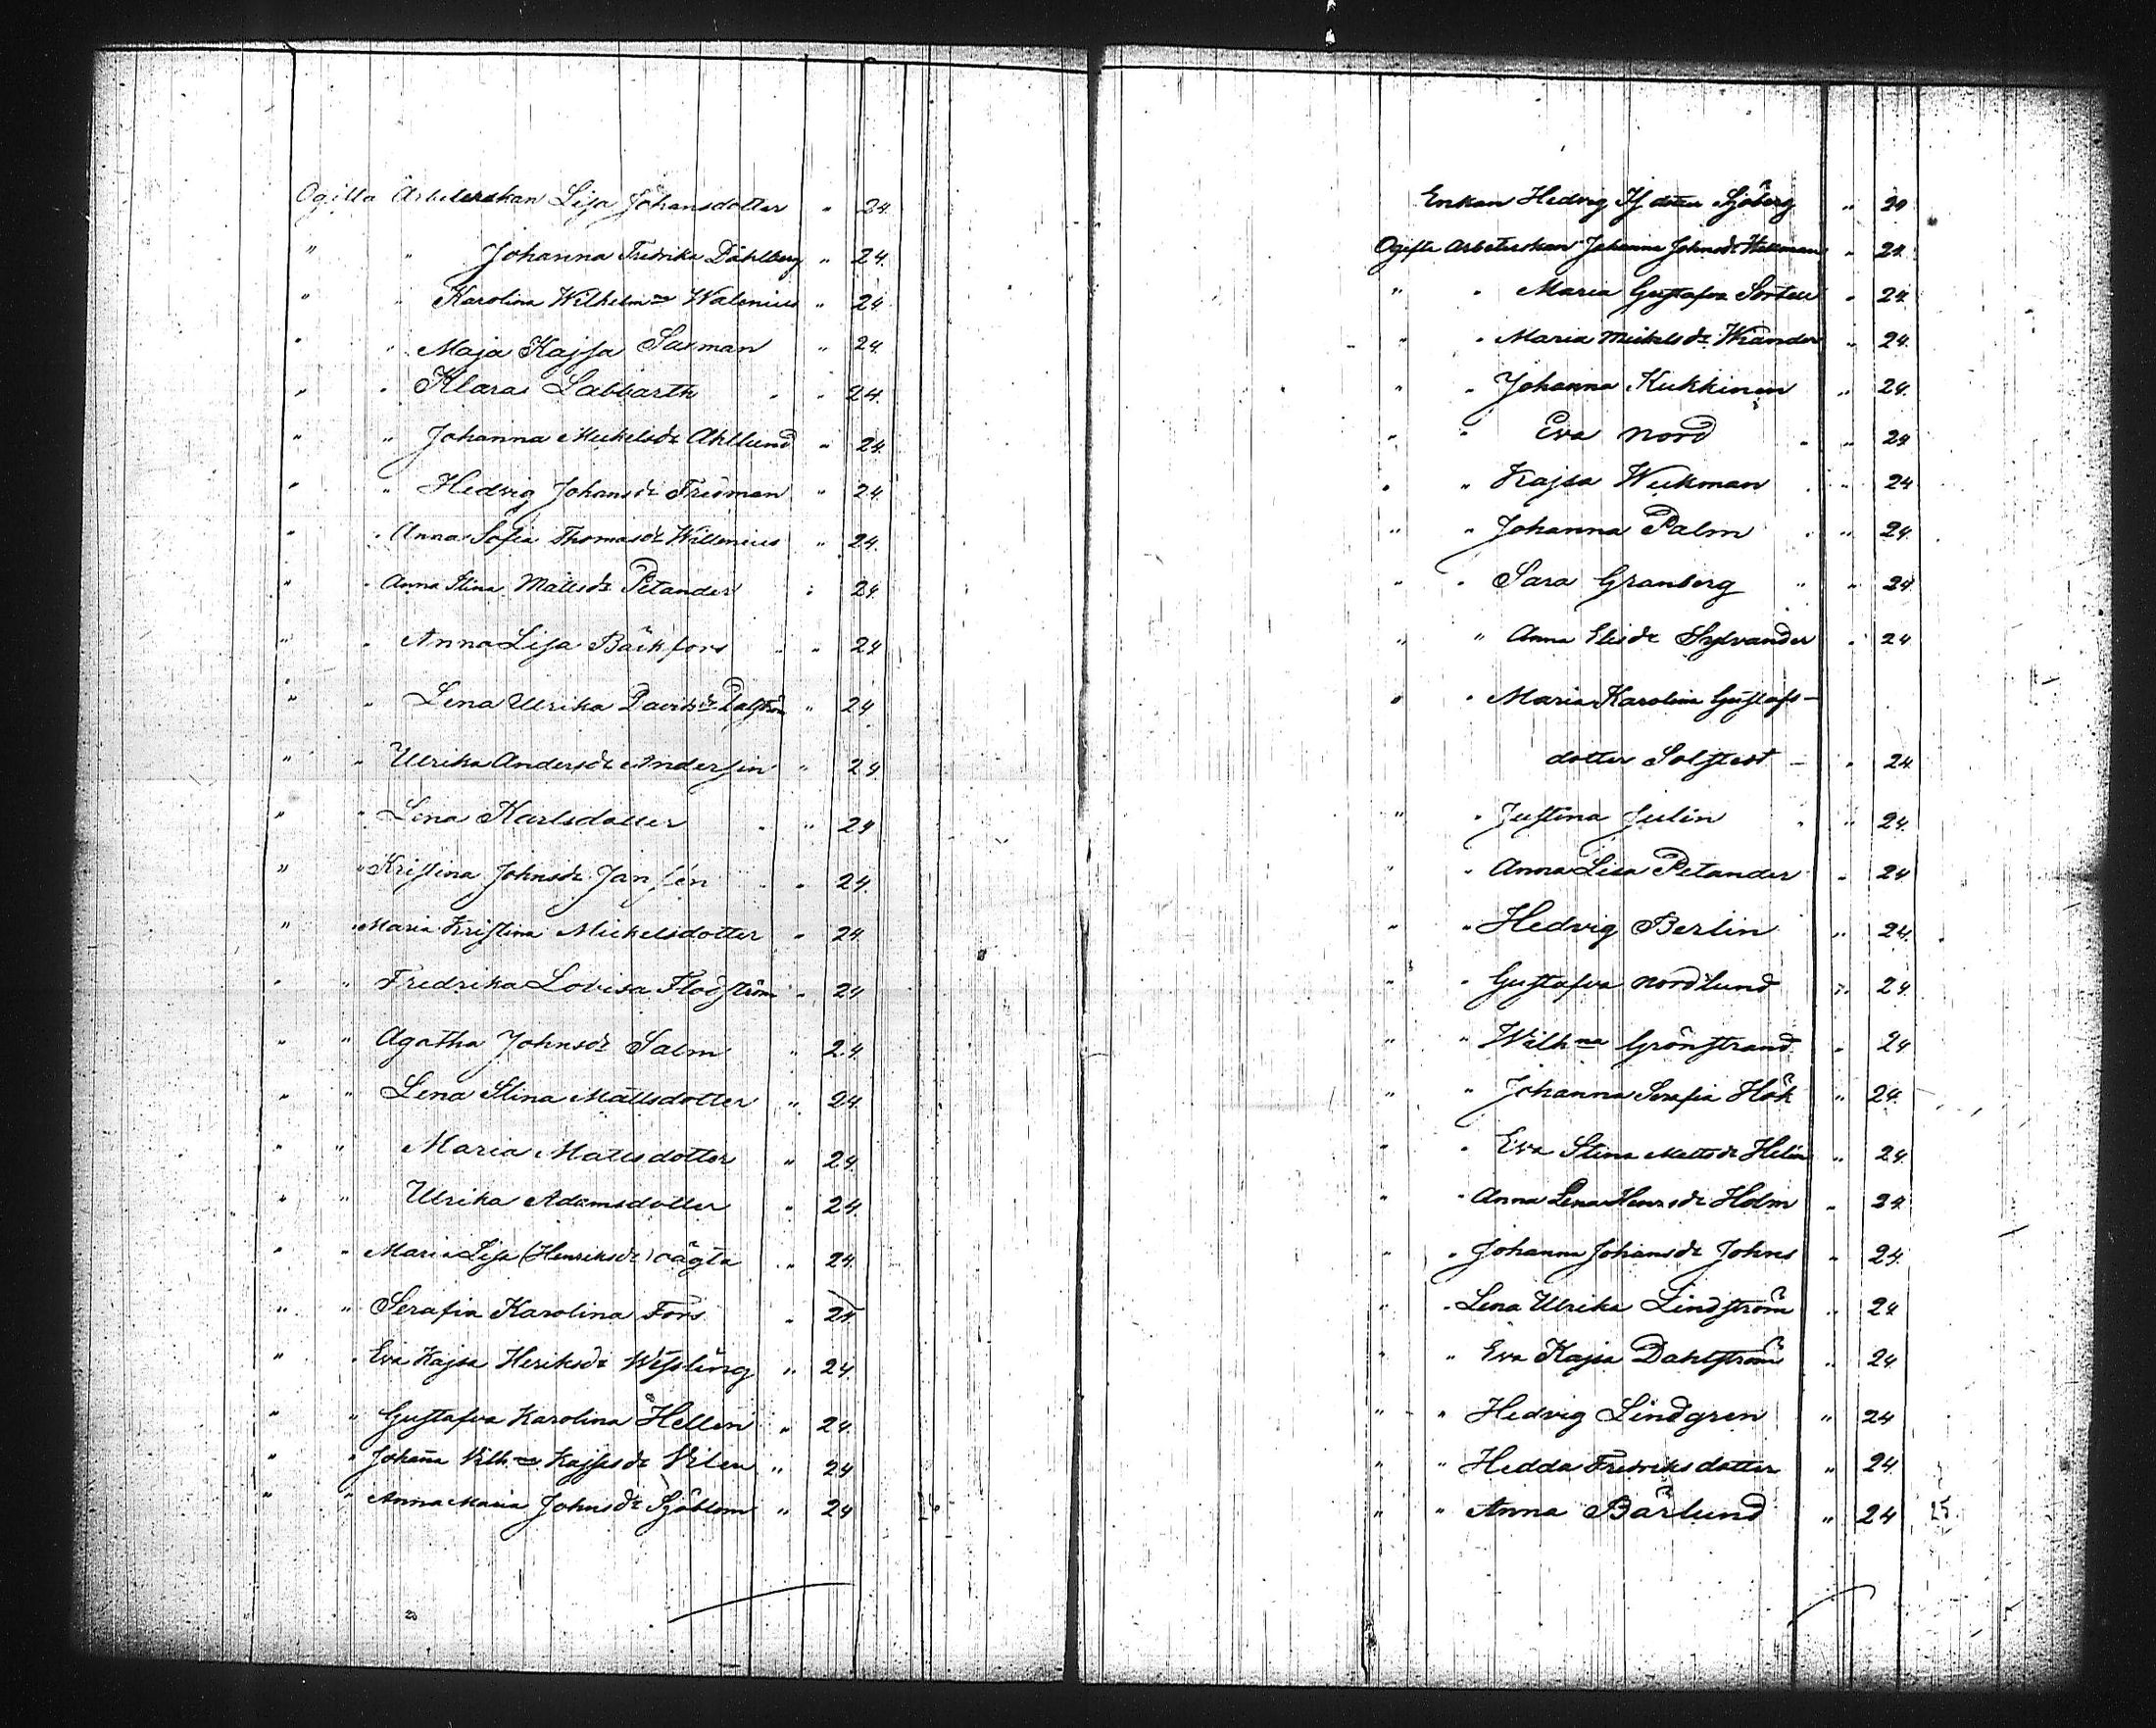 Ogifta Arbeterskan Lisa Johansdotter " 24.
" " Johanna Fredrika Dahlberg " 24.
" " Karolina Wilhelm=na Walenius " 24.
" " Maja Kajsa Saxman " 24.
" " Klara Labbarth " " 24.
" " Johanna Mickelsdr Ahllund " 24.
" " Hedvig Johansdr Fredman " 24.
" " Anna Sofia Thomasdr Willenius " 24.
" " Anna Stina Mattsdr Petander " 24.
" " Anna Lisa Bäckfors " " 24
" " Lena Ulrika Davidsdr " 24
" " Ulrika Andersdr Andersin " 24
" " Lena Karlsdotter " " 24
" " Kristina Johnsdr Jansén " " 24.
" " Maria Kristina Mickelsdotter " 24.
" " Fredrika Lovisa Flodström " 24
" " Agatha Johnsdr Salm " 24
" " Lena Stina Mattsdotter " 24.
" " Maria Mattsdotter " 24.
" " Ulrika Adamsdotter " 24.
" " Maria Lisa (Henriksdr) " 24.
" " Serafia Karolina Fors " 24
" " Eva Kajsa Heriksdr Wessling " 24.
" " Gustafva Karolina Hellen " 24.
" " Johana Vilh=na Kajsasdr Vilen " 24
" " Anna Maria Johnsdr Sjöblom " 24
Enkan Hedvig Sjöberg " 24
Ogifta Arbeterskan Johanna Johnsdr " 24.
" " Maria Gustafva " 24.
" " Maria Mickelsdr Wiander " 24.
" " Johanna Kukkinen " 24.
" " Eva Nord " " 24
" " Kajsa Weckman " " 24
" " Johanna Palm " " 24.
" " Sara Granberg " " 24
" " Anna Elisdr Sylvander " 24
" " Maria Karolina Gustafs-
dotter Solqvist - " 24.
" " Justina Julin " " 24.
" " Anna Lisa Petander " 24
" " Hedvig Berlin " 24.
" " Gustafva Nordlund " 24.
" " Wilh=na Grönstrand " 24
" " Johanna Serafia Hök " 24.
" " Eva Stina Mattsdr Helin " 24.
" " Anna Lena Henrsdr Holm " 24.
" " Johanna Johansdr Johns " 24.
" " Lena Ulrika Lindström " 24
" " Eva Kajsa Dahlström " 24
" " Hedvig Lindgren " 24
" " Hedda Fredriksdotter " 24.
" " Anna Bärlund " 24 25.